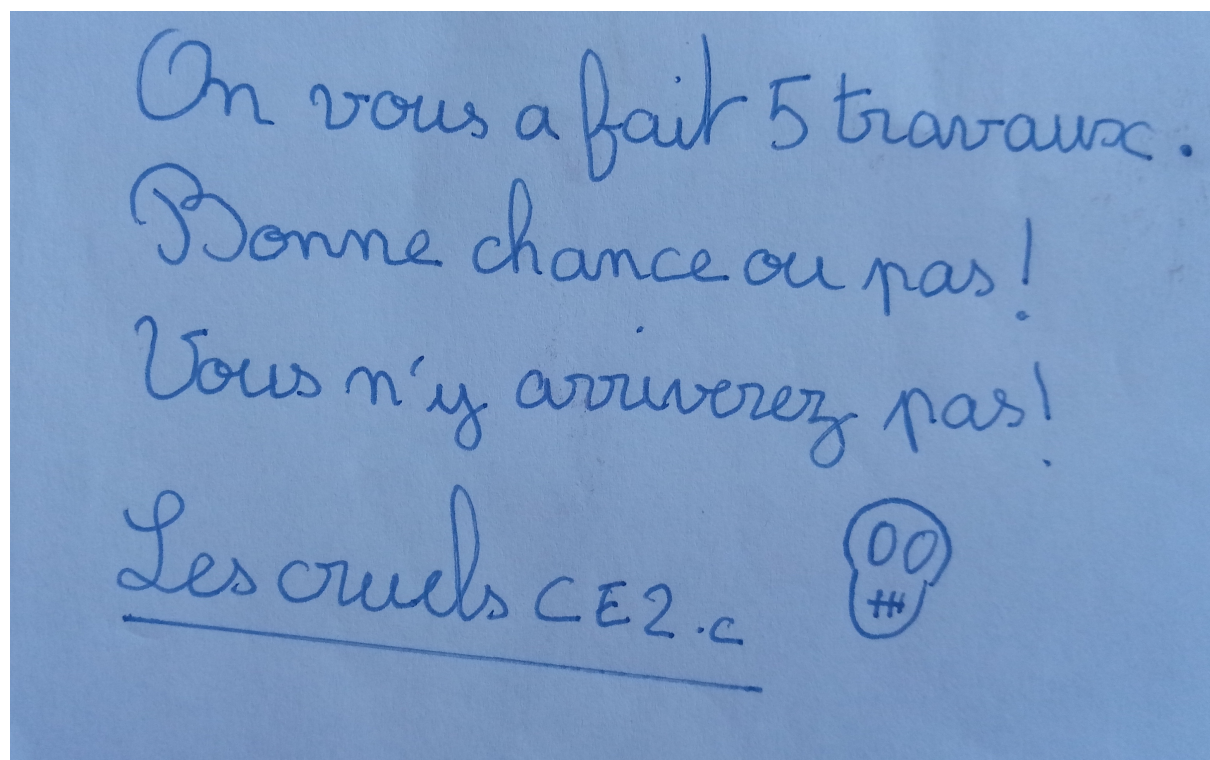 On vous a fait 5 travaux.
Bonne chance ou pas !
Vous n'y arriverez pas !
Les cruels CE2.c